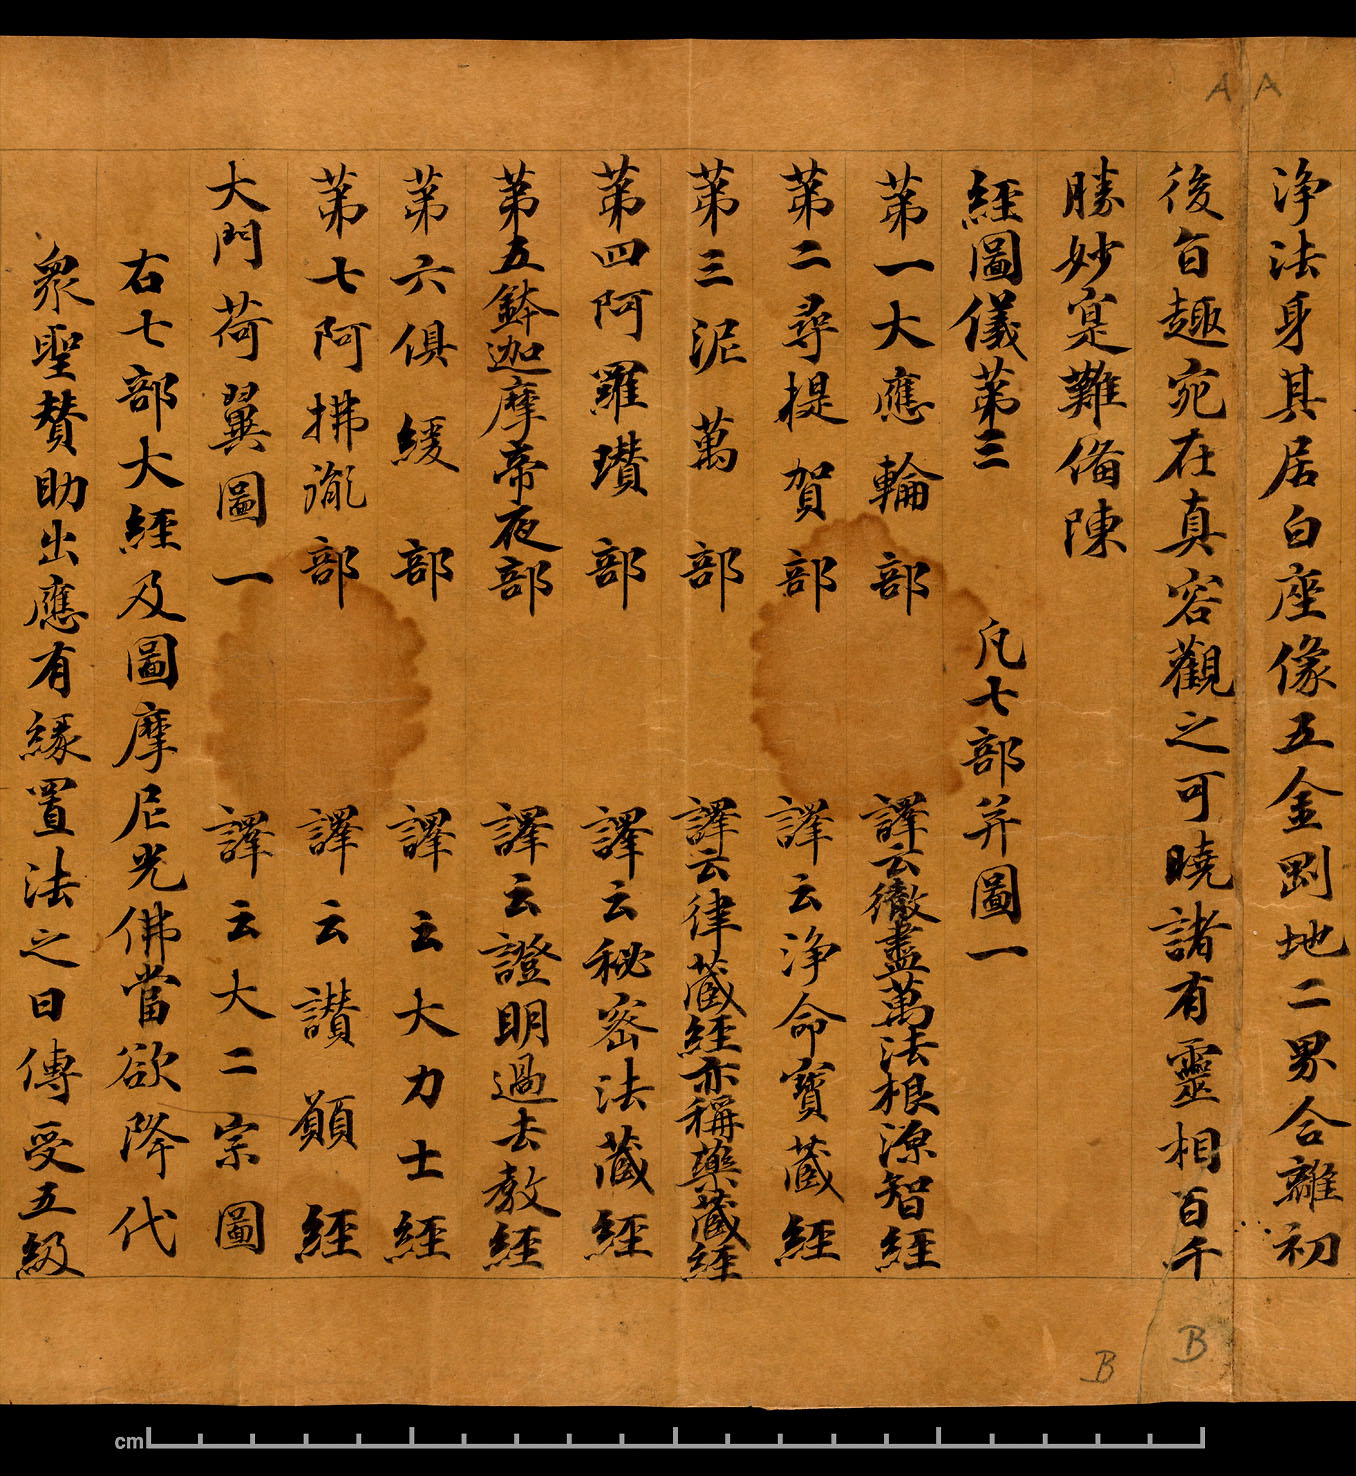 淨法身其居白座像五金剛地二界合離初
後旨趣宛在真容觀之可曉諸有靈相百千
勝妙寔難俻陳
經圖儀苐三 凡七部并圖一
苐一大應輪部 譯云徹盡萬法根源智經
苐二尋提賀部 譯云淨命寳藏經
苐三泥萬部 譯云律藏經亦稱藥藏經
苐四阿羅瓚部 譯云秘密法藏經
苐五鉢迦摩帝夜部 譯云證明過去教經
苐六俱緩部 譯云大力士經
苐七阿拂胤部 譯云讃願經
大門荷翼圖一 譯云大二宗圖
右七部大經及圖摩尼光佛當欲降代
衆聖賛助出應有緣置法之日傳受五級
A A
B B
cm